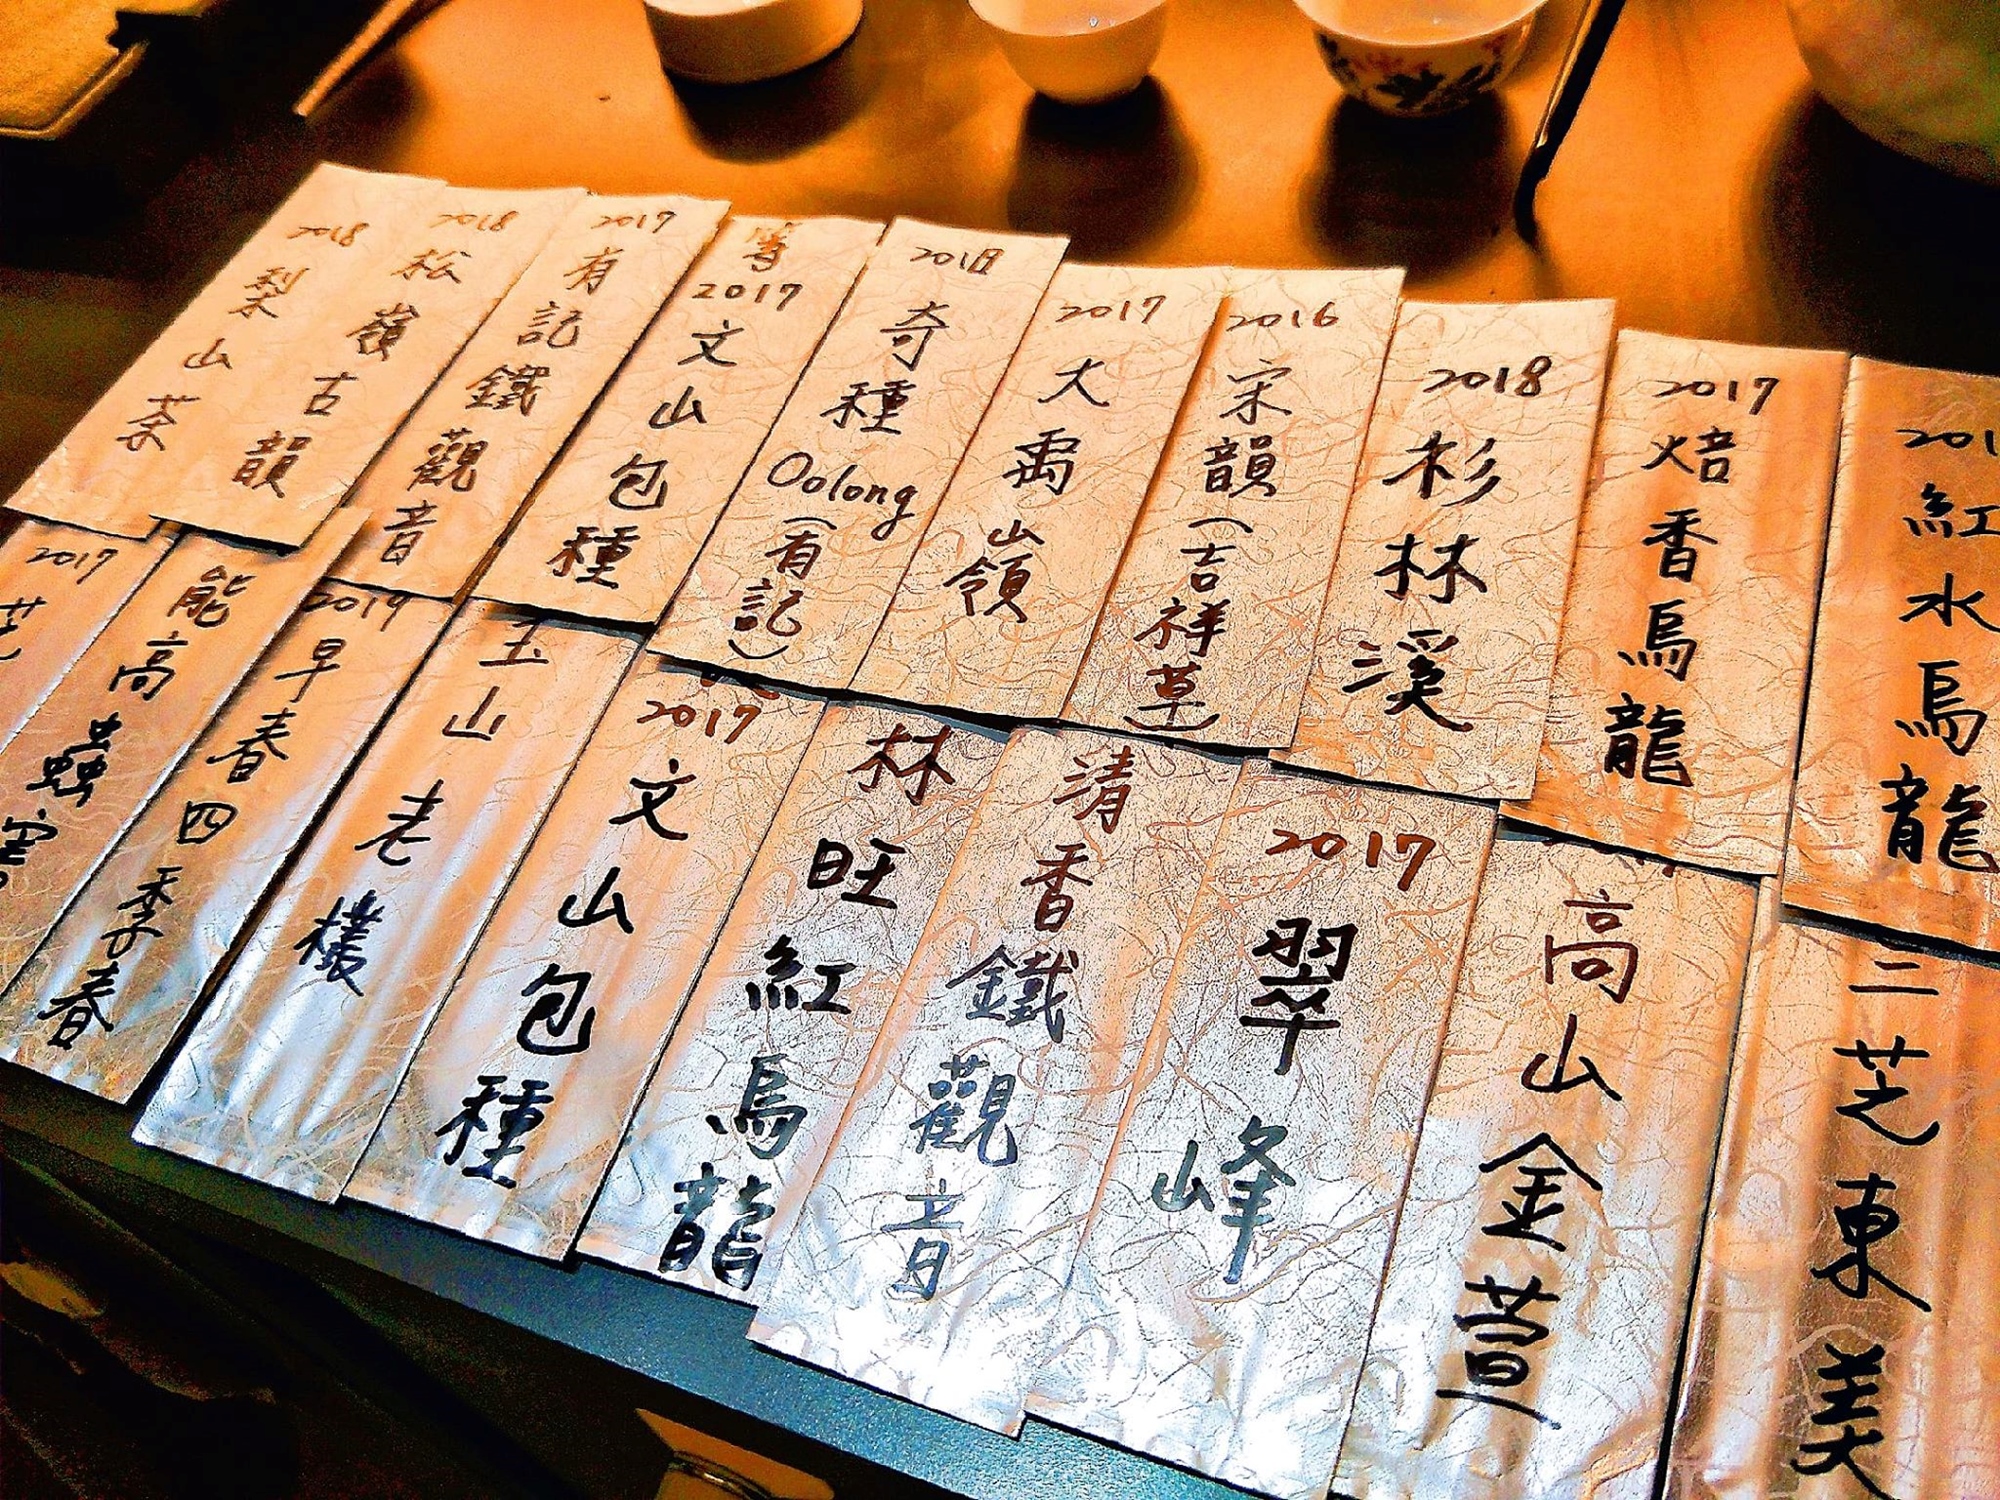 2018
梨山茶
2018
松嶺古韻
2017
有記鐵觀音
2017
文山包種
奇種
Oolong
(有記)
2017
大禹嶺
2016
宋韻(吉祥草)
2018
杉林溪
2017
焙香烏龍
201
紅水烏龍
2017
芝
蟲
能高
早春四季春
2019
玉山老欉
文山包種
2017
林旺紅烏龍
清香鐵觀音
2017
翠峰
高山金萱
三芝東美